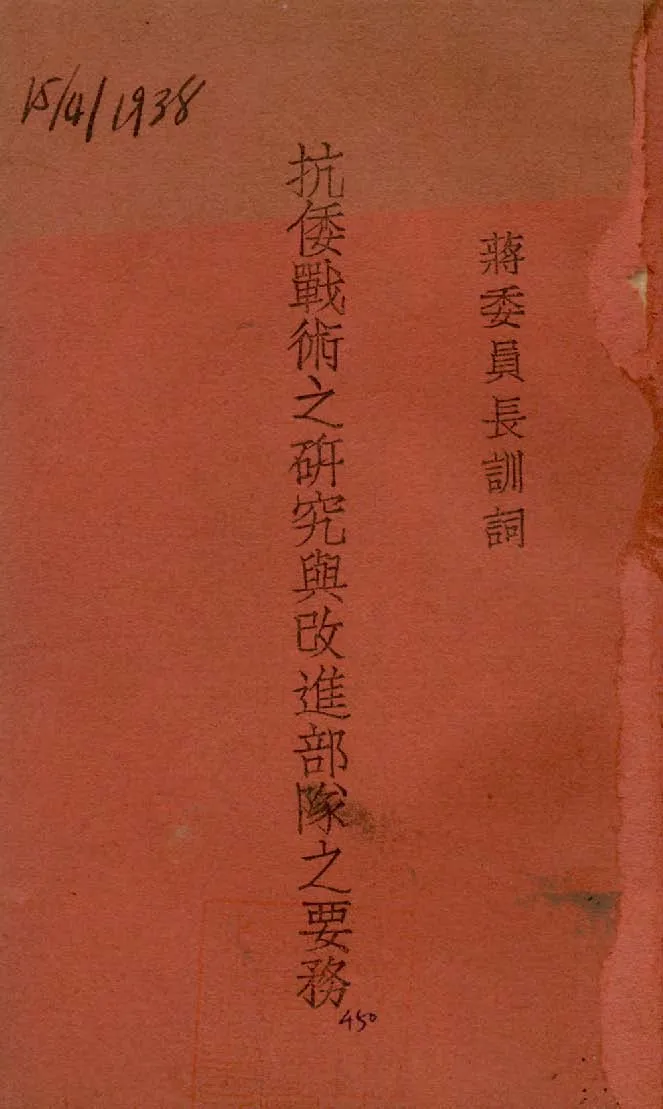 15/4/1938
蔣委員長訓詞
抗倭戰術之硏究與改進部隊之要務
450